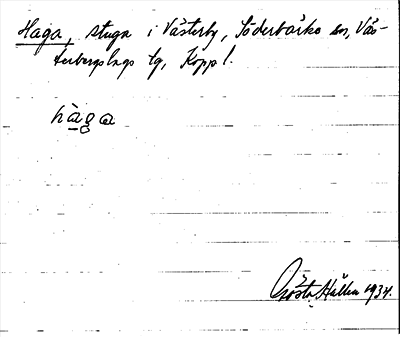 Haga, stuga i Västerby, Söderbärke sn, Väs-
terbergslags tg, Koppl.
hàga
Gösta Hállen 1934.